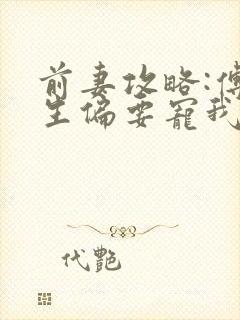 前妻攻略:傅
生偏要宠我
代艷